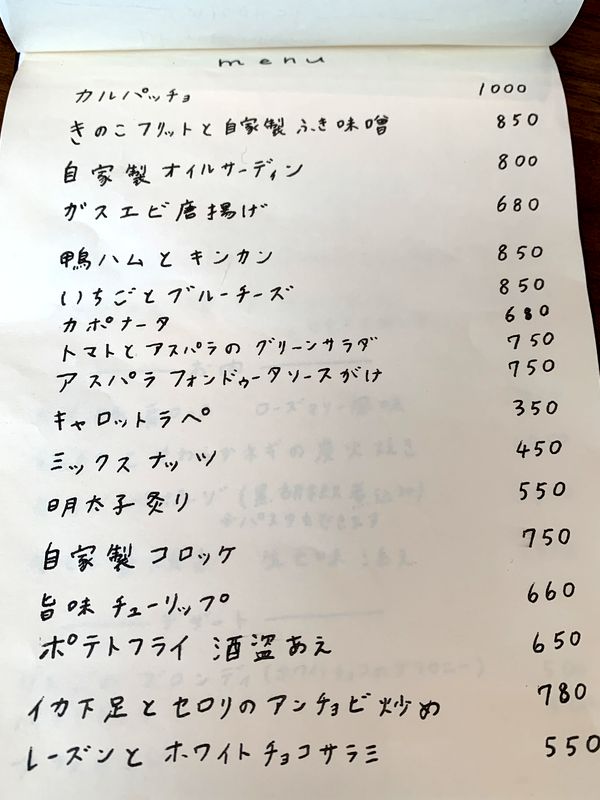 menu
カルパッチョ 1000
きのこフリットと自家製ふき味噌 850
自家製オイルサーディン 800
ガスエビ唐揚げ 680
鴨ハムとキンカン 850
いちごとブルーチーズ 850
カポナータ 680
トマトとアスパラのグリーンサラダ 750
アスパラフォンドゥータソースがけ 750
キャロットラペ 350
ミックスナッツ 450
明太子炙り 550
自家製コロッケ 750
旨味チューリップ 660
ポテトフライ 酒盗あえ 650
イカ下足とセロリのアンチョビ炒め 780
レーズンとホワイトチョコサラミ 550